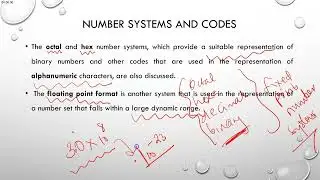 NUMBER SYSTEMS AND CODES
• The octal and hex number systems, which provide a suitable representation of
binary numbers and other codes that are used in the representation of
alphanumeric characters, are also discussed.
• The floating point format is another system that is used in the representation of
a number set that falls within a large dynamic range.
octal
hex
decimal
binary
fixed
point
number
systems
30 × 10^8
10^-23